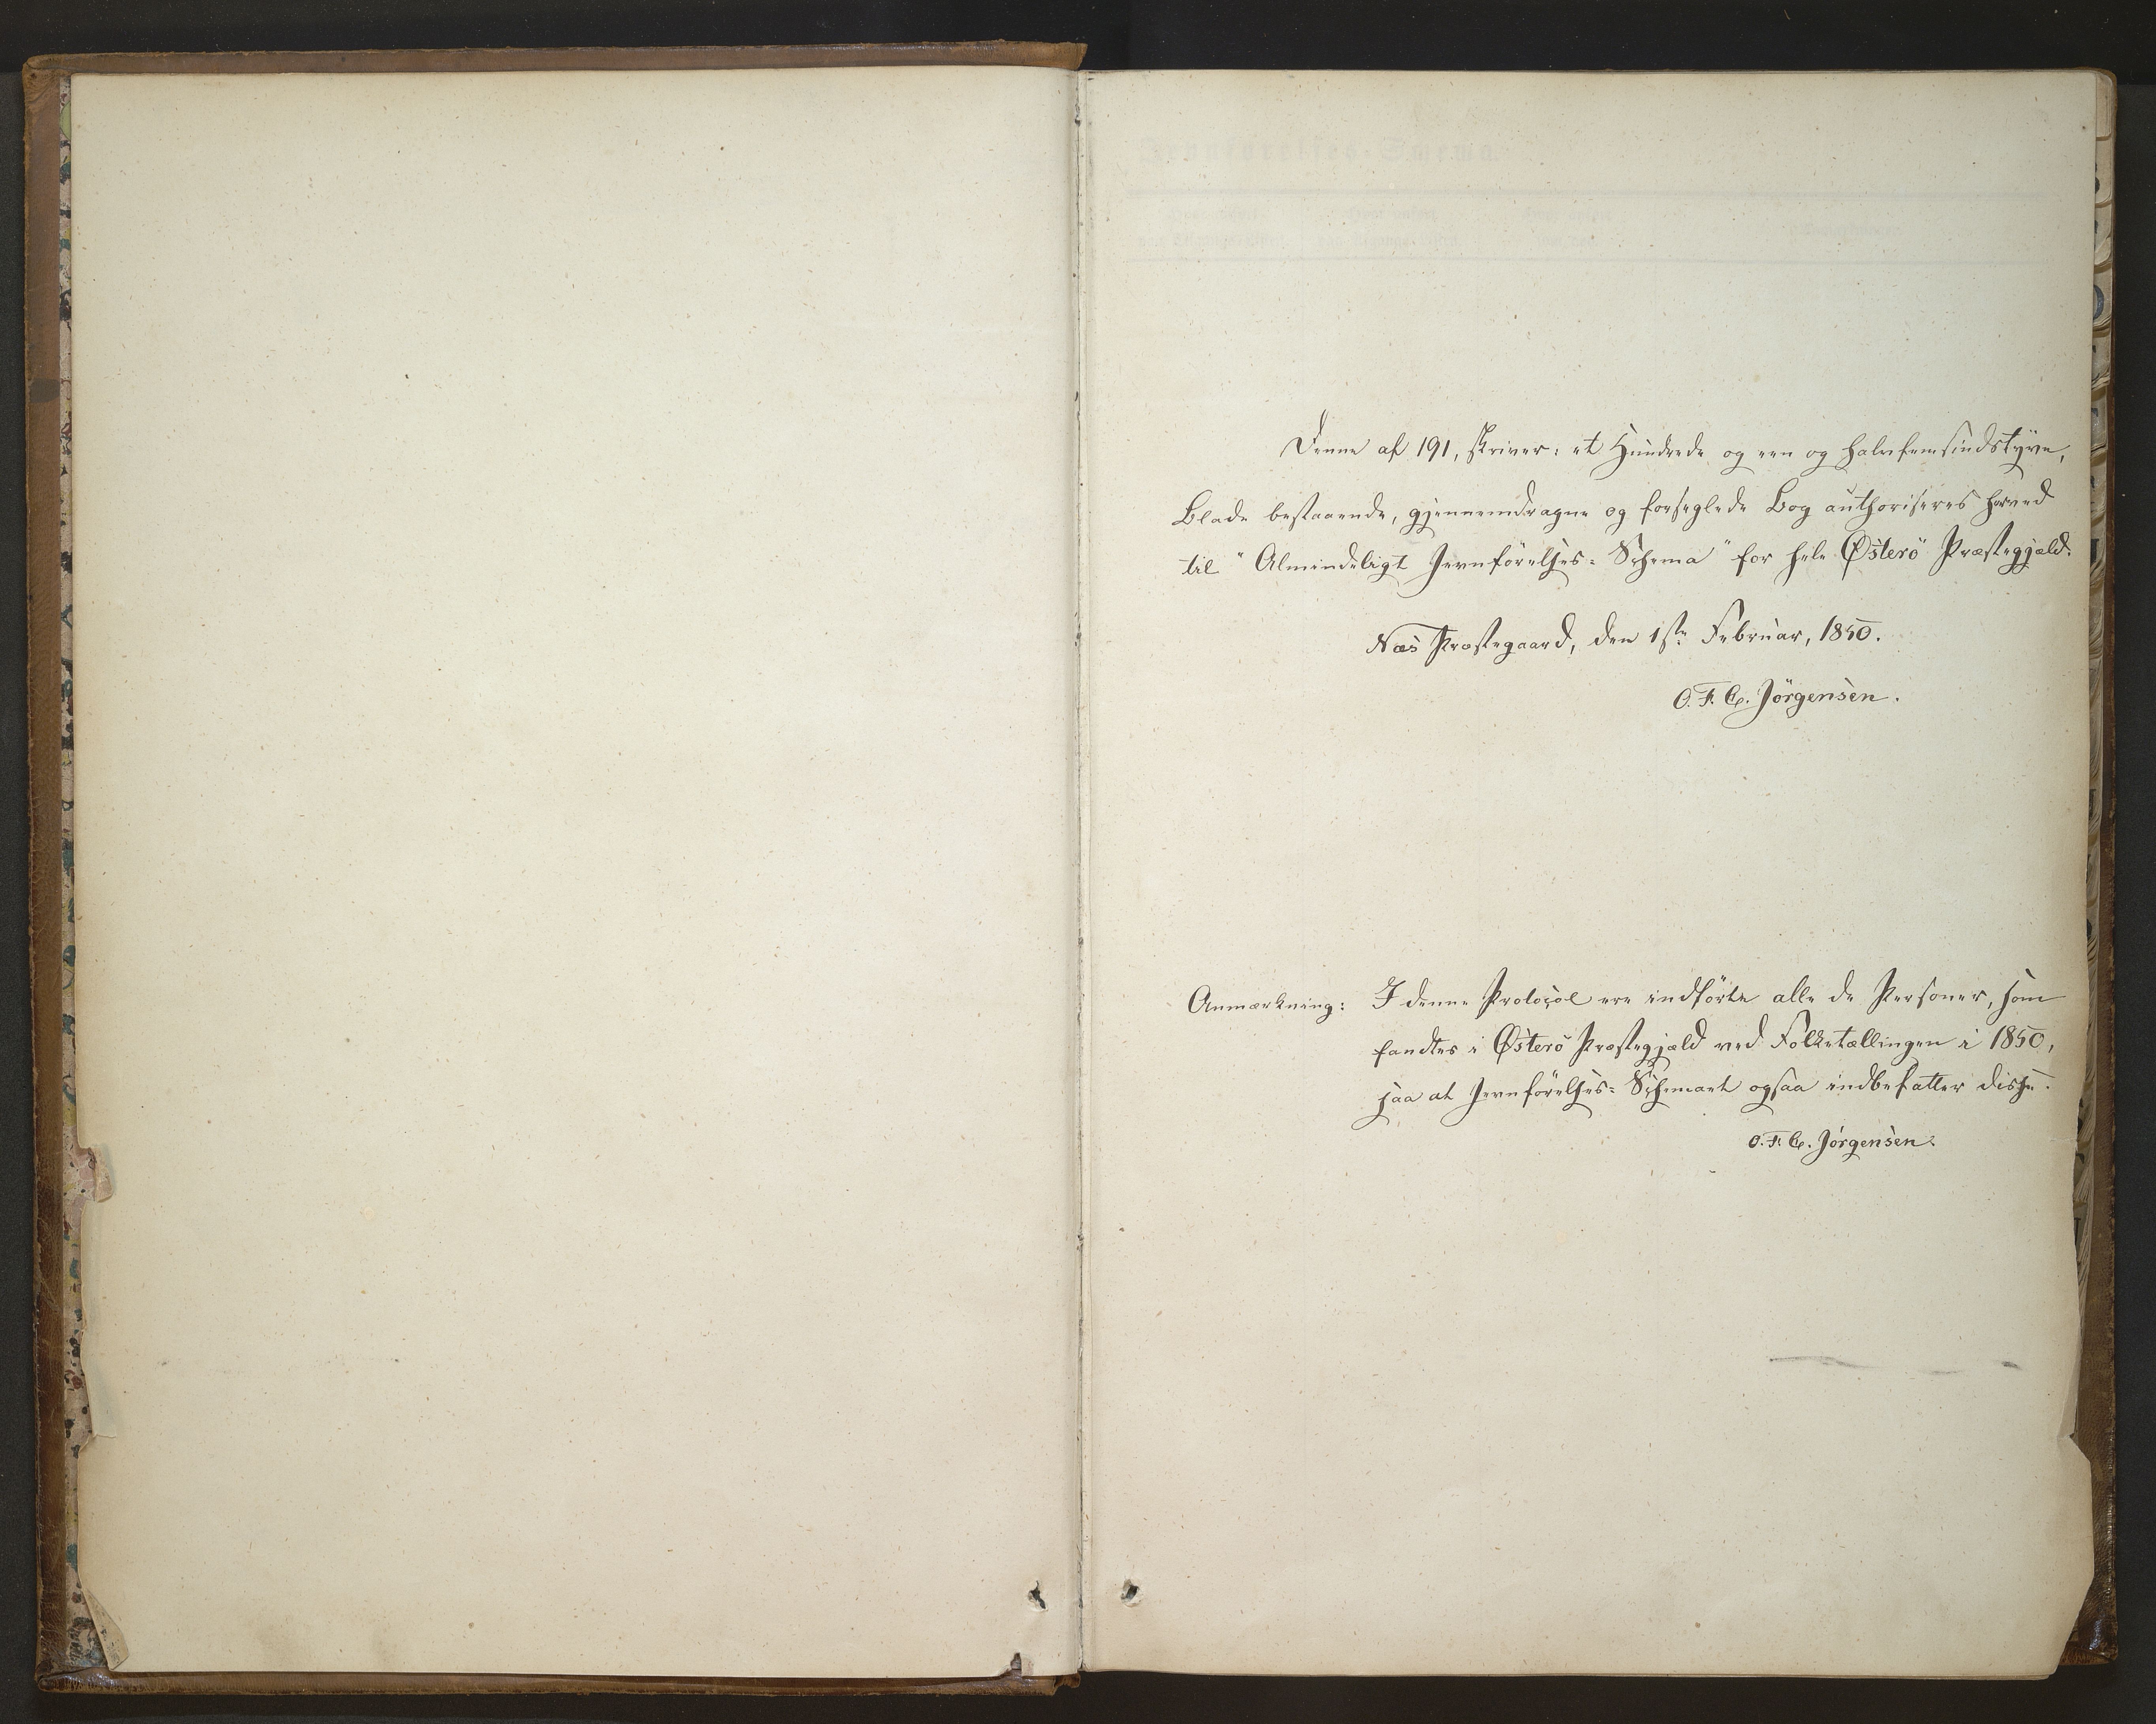 Denne af 191, skriver: et Hundrede og een og halvfemsindstyve,
Blade bestaaende, gjennemdragne og forseglede Bog authoriseres herved
til "Almindeligt Jevnförelses-Schema" for hele Østerö Præstegjæld.
Næs Præstegaard, den 1ste Februar, 1850.
O. F. C. Jörgensen.
Anmærkning: I denne Protocol ere indförte alle de Personer, som
fandtes i Østerö Præstegjæld ved Folketællingen i 1850,
saa at Jevnförelses-Schemaet ogsaa indbefatter disse.
O. F. C. Jörgensen.